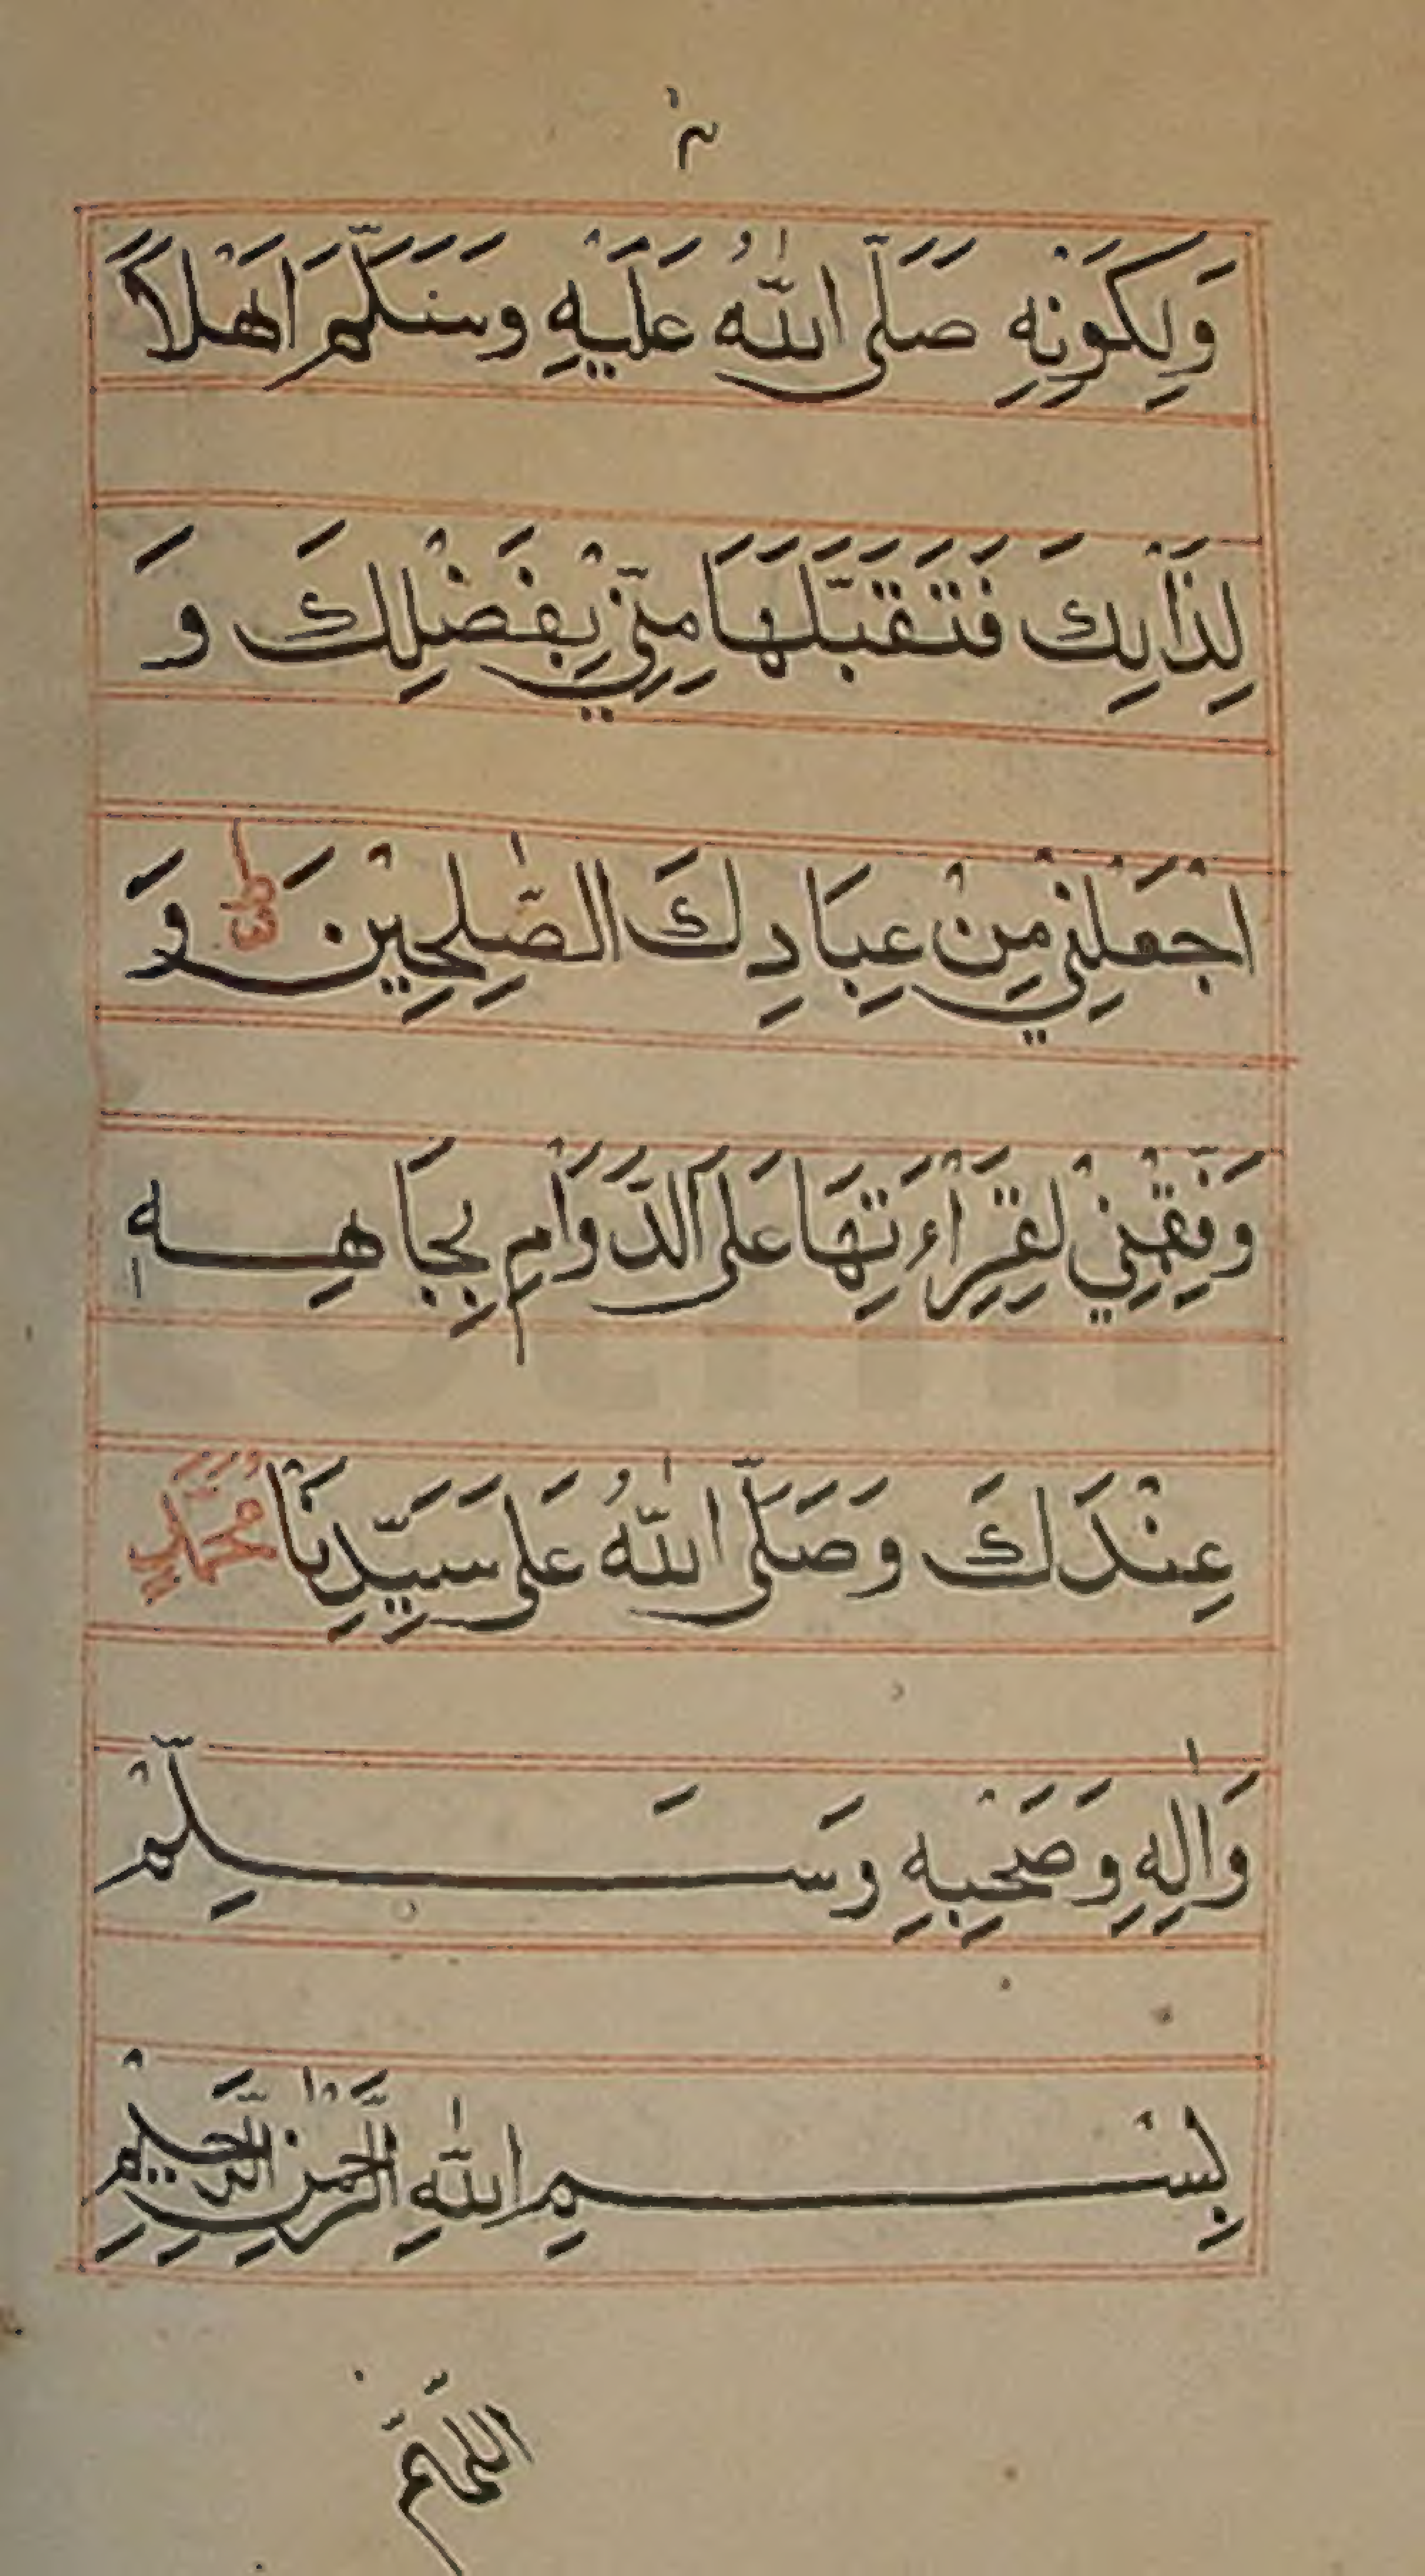 وَلِكَوْنِهِ صَلَّى اللّٰهُ عَلَيْهِ وَسَلَّمَ اَهْلاً
لِذَالِكَ فَتَقَبَّلَهَا مِنِّيْ بِفَضْلِكَ وَ
اجْعَلْنِيْ مِنْ عِبَادِكَ الصّٰلِحِيْنَ وَ
وَفِّقْنِيْ لِقِرَاْءَتِهَا عَلَى الدَّوَاْمِ بِجَاهِهٖ
عِنْدَكَ وَصَلَّى اللّٰهُ عَلَى سَيِّدِنَا مُحَمَّدٍ
وَاٰلِهِ وَصَحْبِهِ وَسَلِّمْ
بِسْمِ اللّٰهِ الرَّحْمٰنِ الرَّحِيْمِ
اللّهمّ